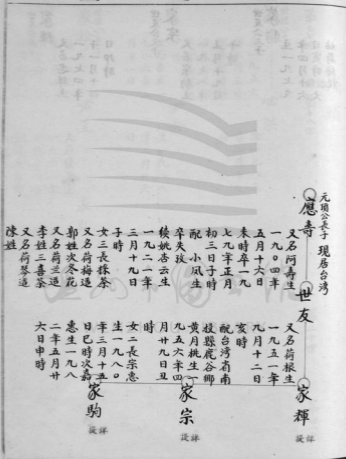 元頊公長子 現居台湾
應寿
又名阿寿生
一九〇四年
五月十六日
未時卒一九
七九年正月
初三日子時
配 小鳳生
卒失攷
續姚杏云生
一九二一年
三月十九日
子時
女三長採荼
又名荷梅适
郭姓次冬花
又名荷兰适
李姓三喜荼
又名荷琴适
陳姓
世友
又名荷根生
一九五一年
九月十二日
亥時
配台湾省南
投縣鹿谷鄉
黄月桃生一
九五六年四
月廿九日丑
時
女二長宗惠
生一九八〇
年三月十五
日巳時次嘉
惠生一九八
二年五月廿
六日申時
家輝
詳後
家宗
詳後
家駒
詳後